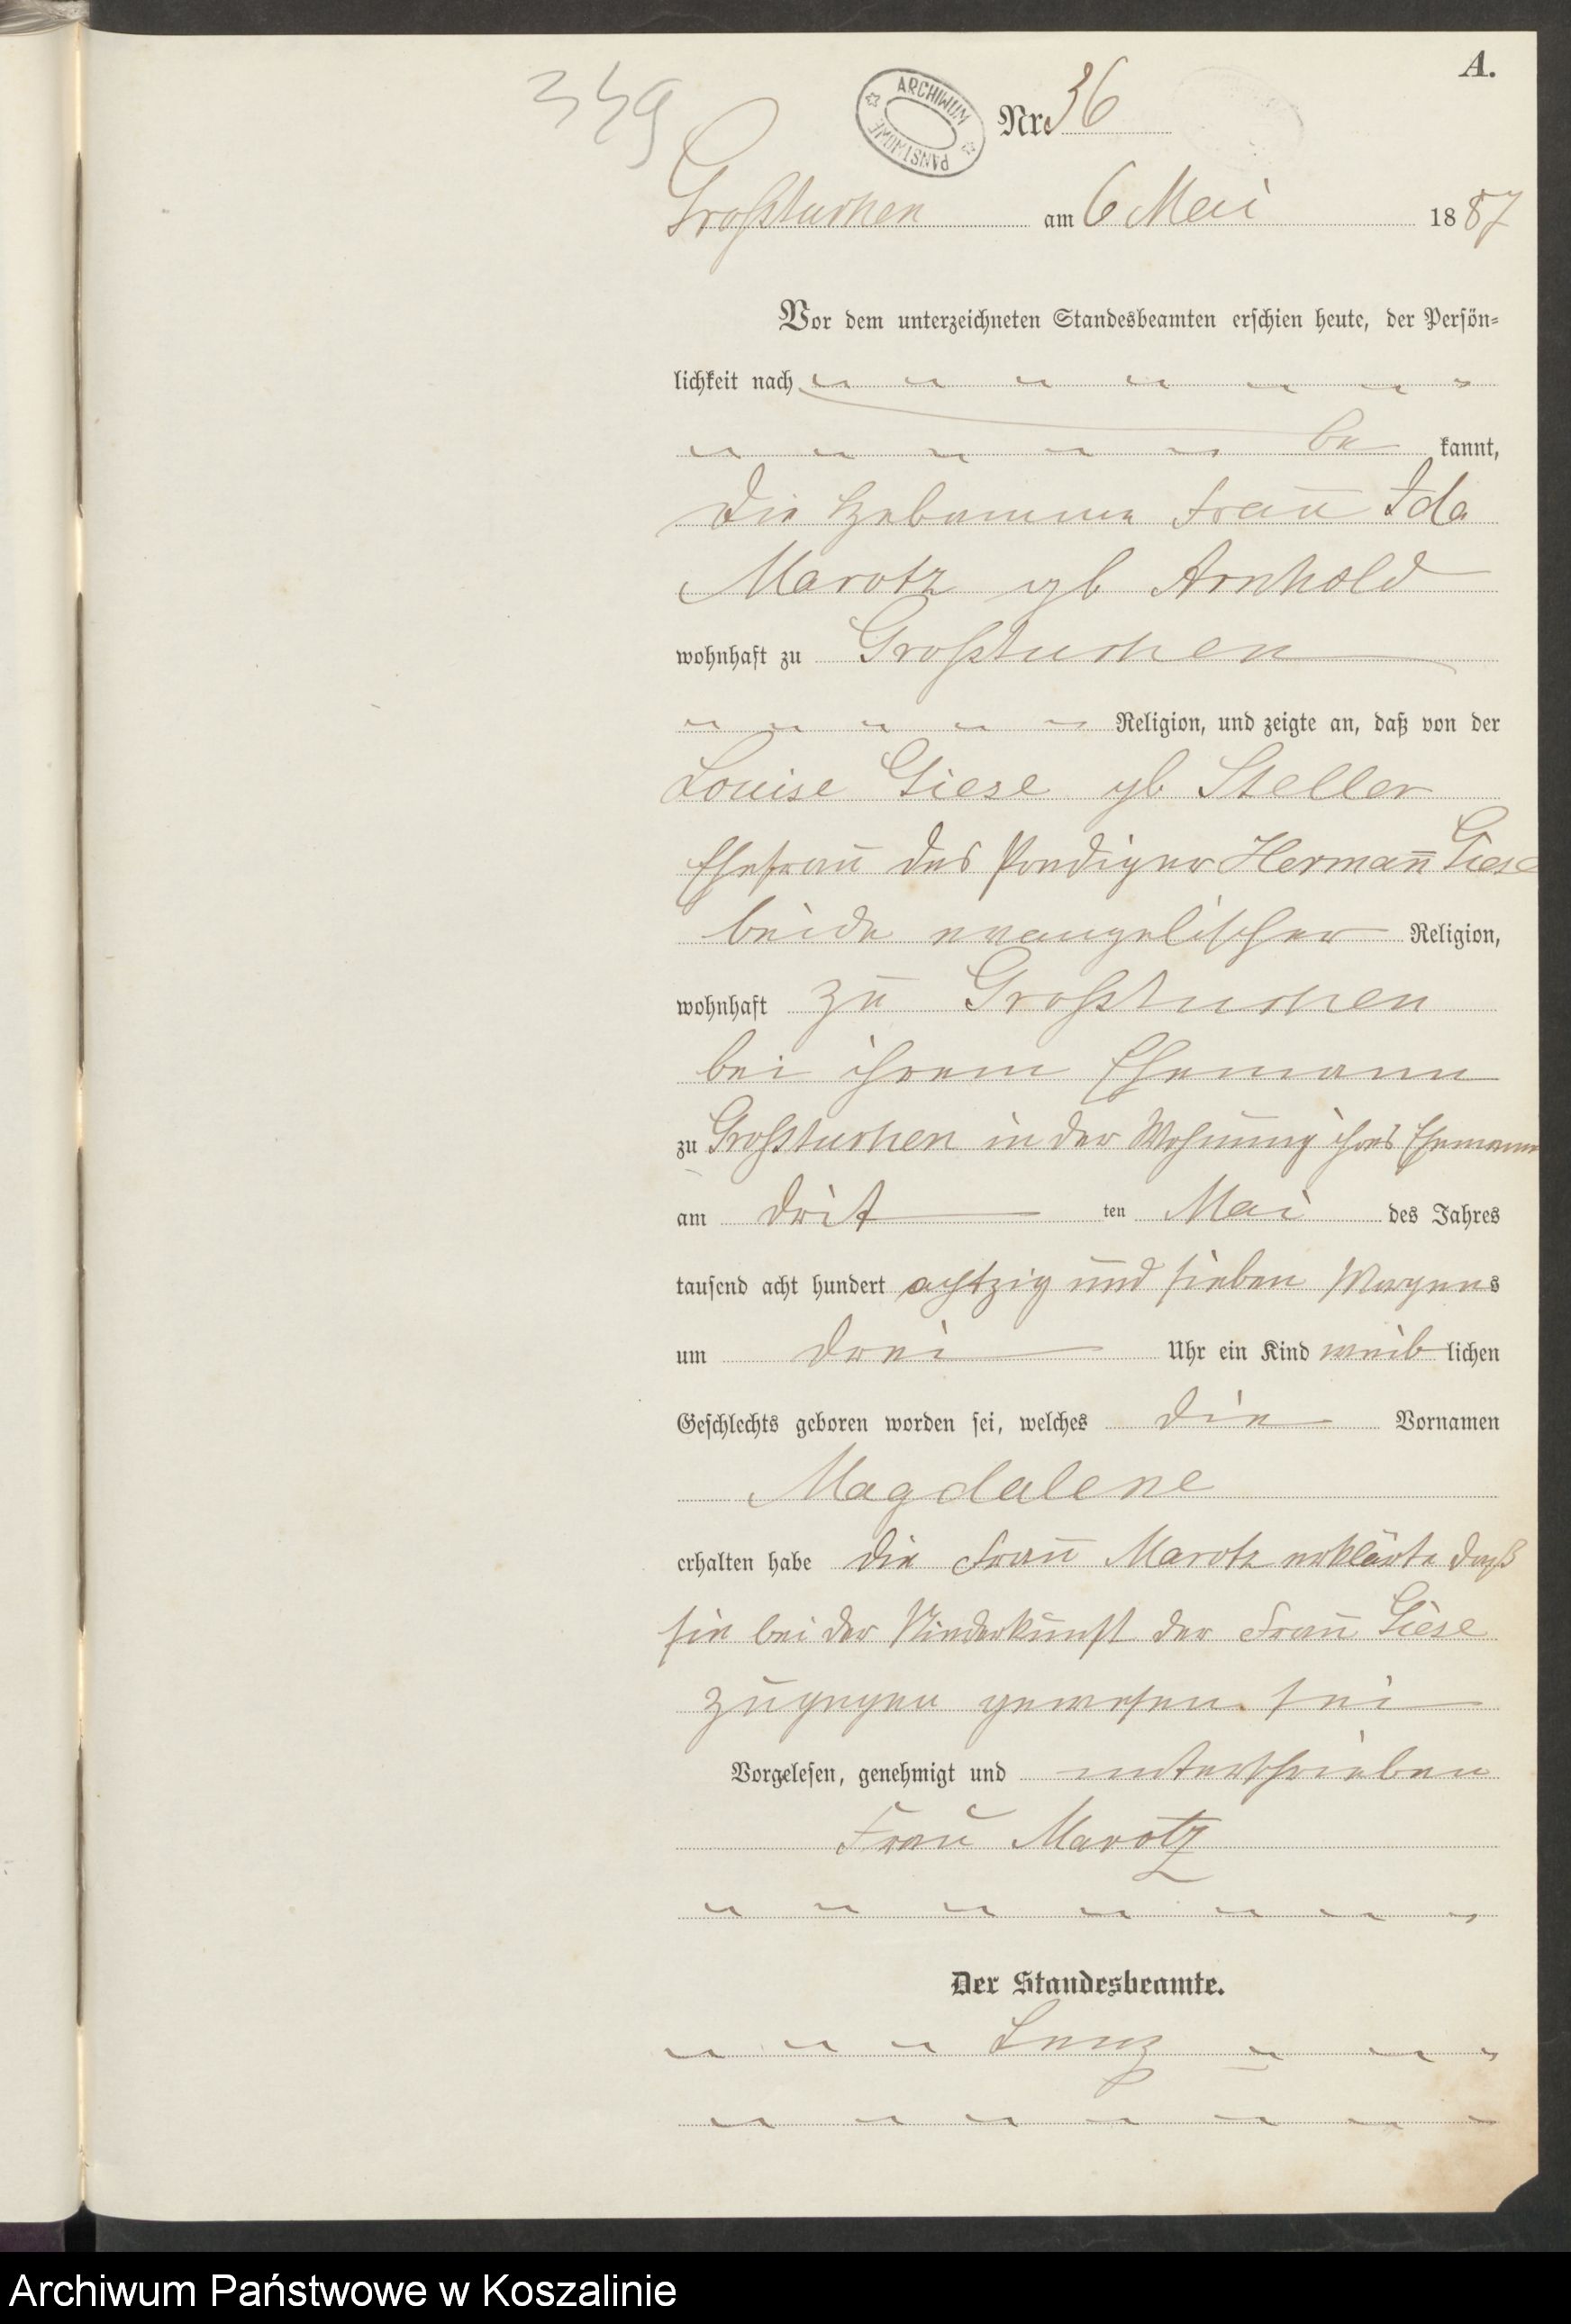 A.
349
ARCHIWUM PAŃSTWOWE
Nr. 36
Großtuchen am 6 Mai 1887
Vor dem unterzeichneten Standesbeamten erschien heute, der Persön-
lichkeit nach
be kannt,
die Hebamme Frau Ida
Marotz gb Arnhold
wohnhaft zu Großtuchen
Religion, und zeigte an, daß von der
Louise Giese gb Steller
Ehefrau des Prediger Hermann Giese
beide evangelischer Religion,
wohnhaft zu Großtuchen
bei ihrem Ehemann
zu Großtuchen in der Wohnung ihres Ehemann
am drit ten Mai des Jahres
tausend acht hundert achtzig und sieben Morgens
um drei Uhr ein Kind weib lichen
Geschlechts geboren worden sei, welches die Vornamen
Magdalene
erhalten habe die Frau Marotz erklärte daß
sie bei der Niederkunft der Frau Giese
zugegen gewesen sei
Vorgelesen, genehmigt und unterschrieben
Frau Marotz
Der Standesbeamte.
Lenz
Archiwum Państwowe w Koszalinie